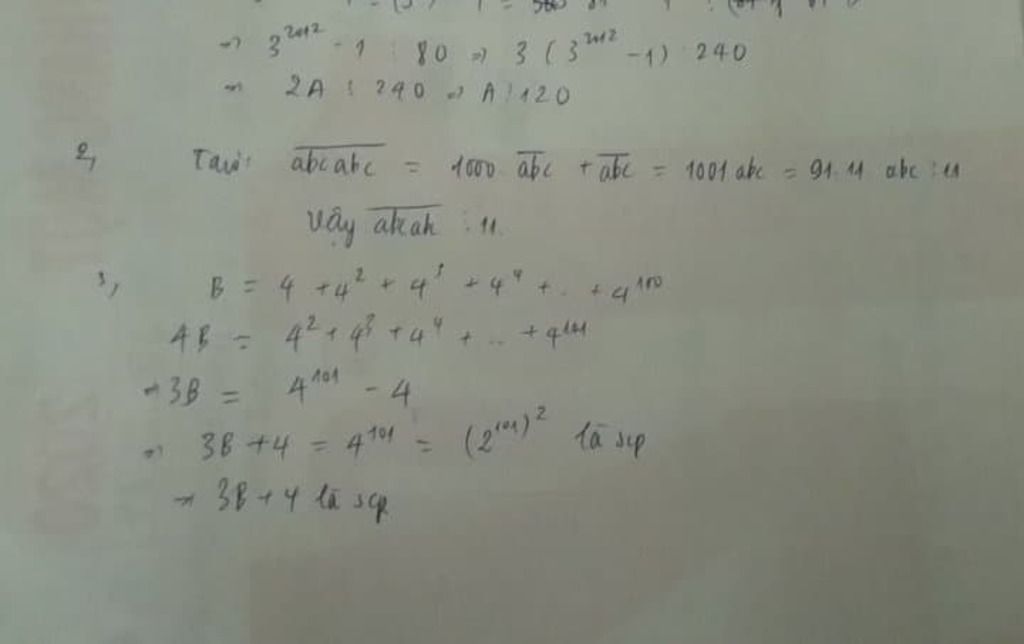 ⇒ 3^2012 - 1 ⋮ 80 ⇒ 3 (3^2012 - 1) ⋮ 240
⇒ 2A ⋮ 240 ⇒ A ⋮ 120
2, Ta có: abcabc = 1000 abc + abc = 1001 abc = 91.11 abc ⋮ 11
Vậy abcabc ⋮ 11.
3, B = 4 + 4^2 + 4^3 + 4^4 + .. + 4^100
4B = 4^2 + 4^3 + 4^4 + .. + 4^101
⇒ 3B = 4^101 - 4
⇒ 3B + 4 = 4^101 = (2^101)^2 là scp
⇒ 3B + 4 là scp